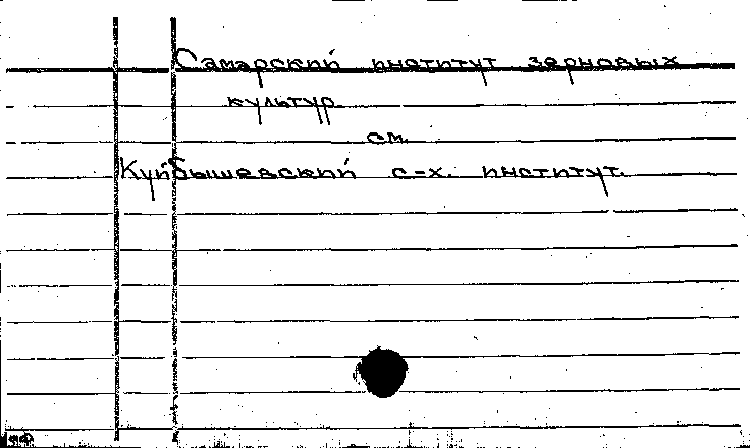 Самарский институт зерновых
культур
см.
Куйбышевский с-х. институт.